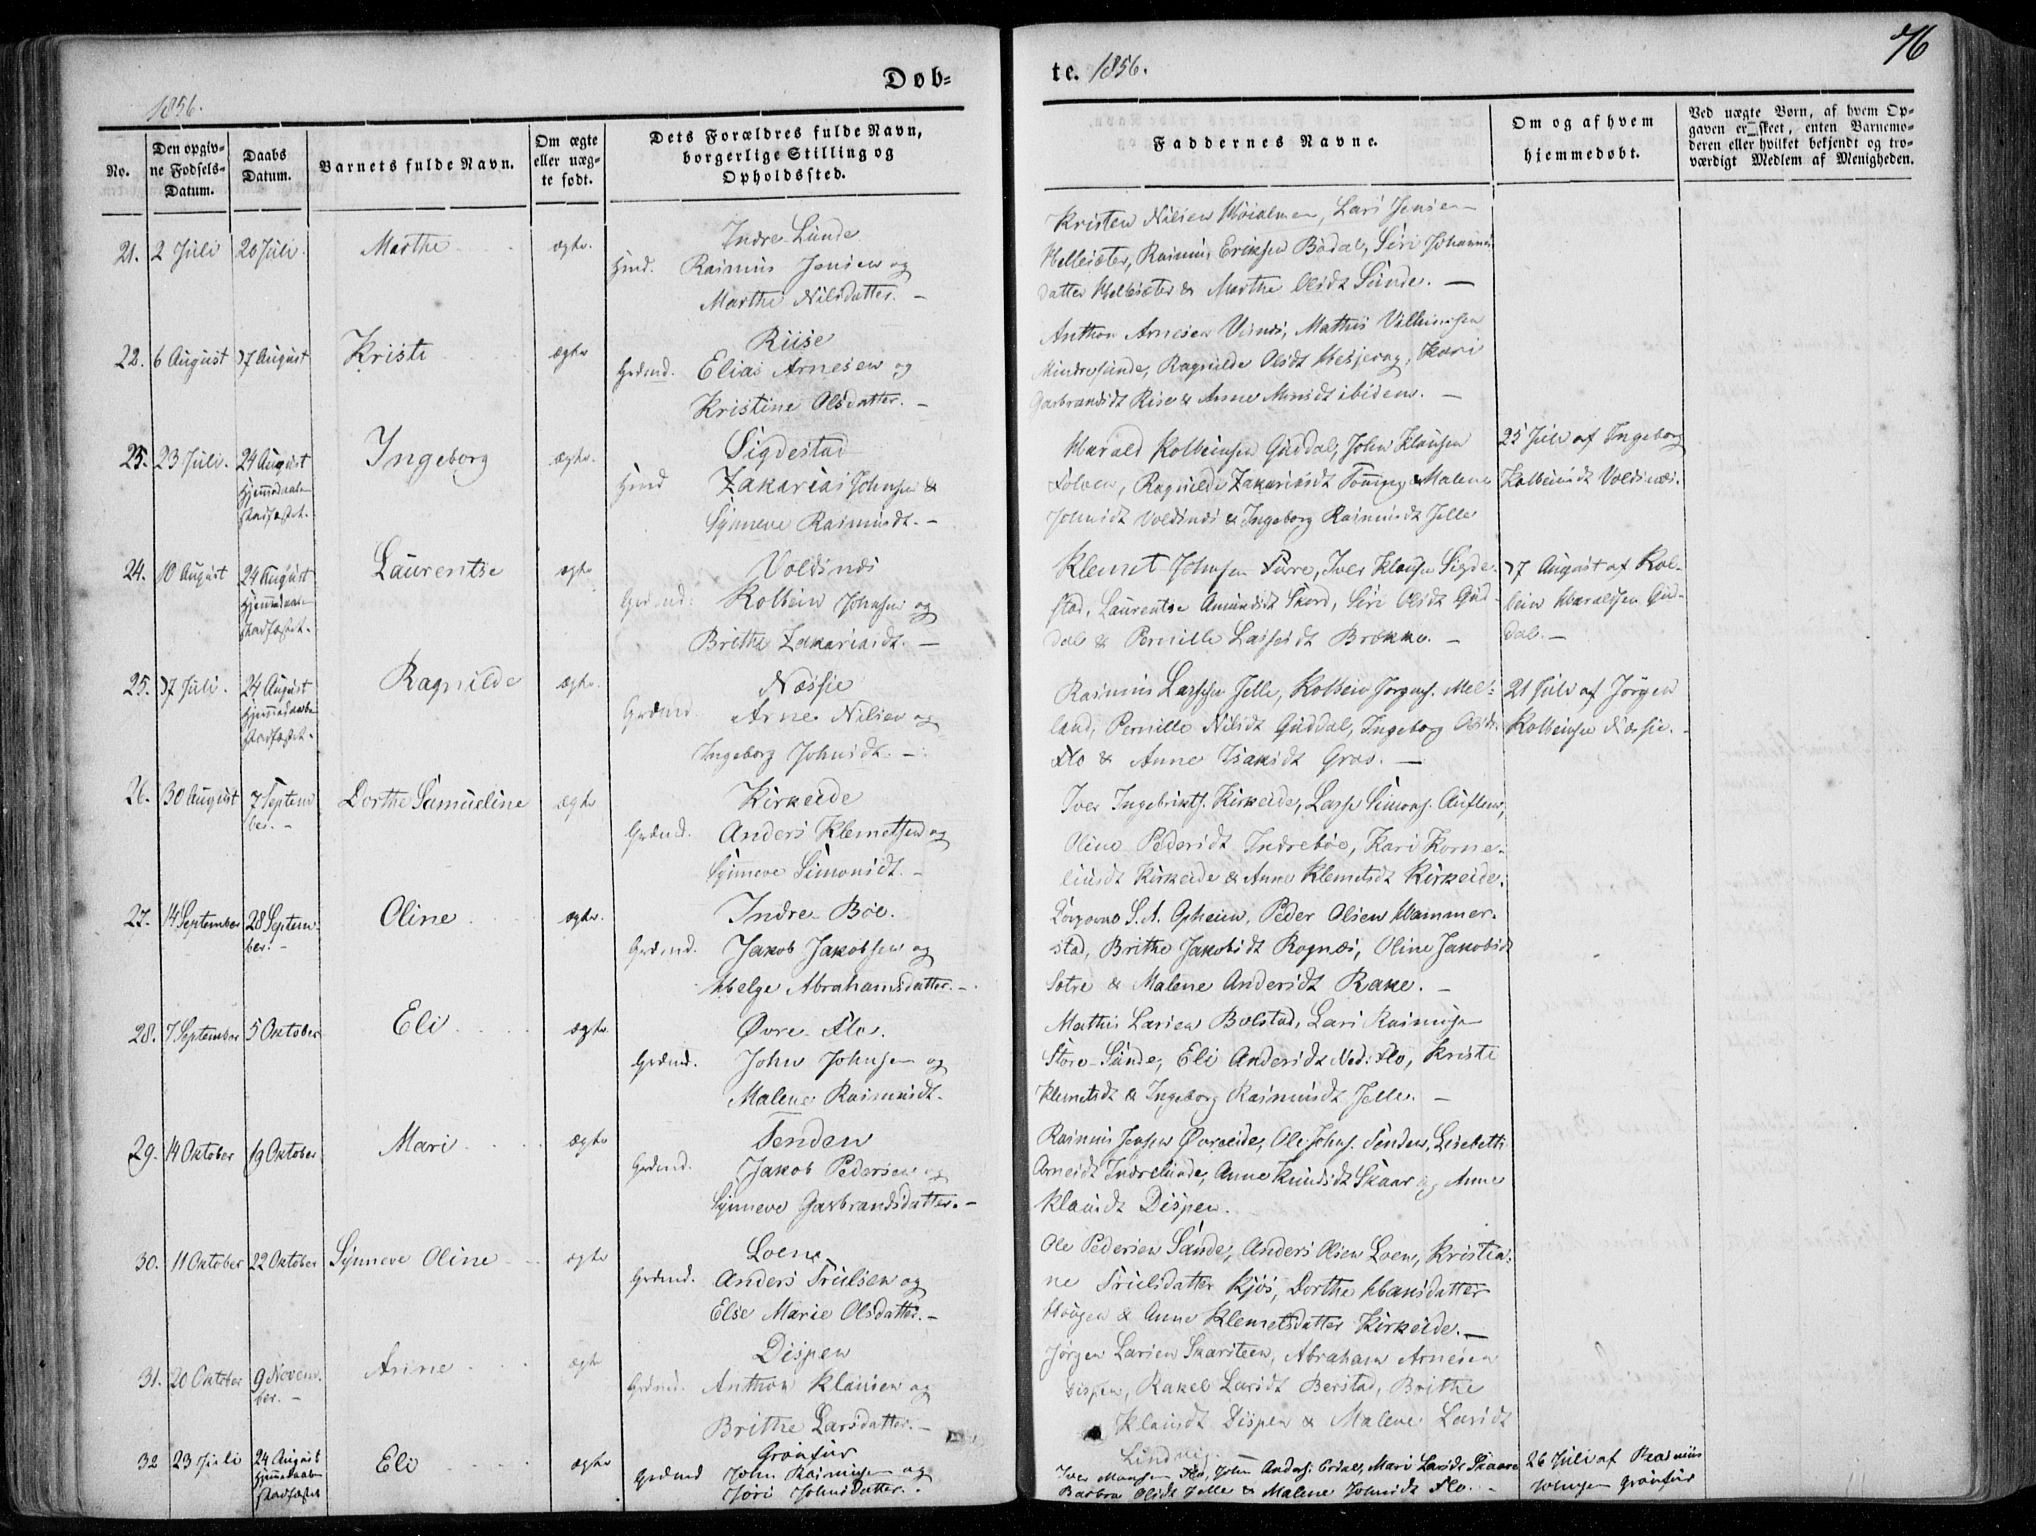 76
Døb=
te. 1856.
1856.
No.
Den opgiv-
ne Fødsels-
Datum.
Daabs
Datum.
Barnets fulde Navn.
Om ægte
eller uæg-
te født.
Dets Forældres fulde Navn,
borgerlige Stilling og
Opholdssted.
Faddernes Navne.
Om og af hvem
hjemmedøbt.
Ved uægte Børn, af hvem Op-
gaven er skeet, enten Barnemo-
deren eller hvilket bekjendt og tro-
værdigt Medlem af Menigheden.
21. 2 Juli 20 Juli. Marthe ægte.
Indre Sunde
Rasmus Jensen og
Marthe Nilsdatter. -
Kristen Nilsen Lars Jensen
Hellesæter, Rasmus Eriksen Bødal, Siri Johannes
datter Hellesæter & Marthe Olsdt Sunde. -
22. 6 August 17 August Kristi ægte
Riise
Grdmd. Elias Arnesen og
Kristine Olsdatter. -
Anthon Arnesen Visnæs, Mathis Villumsen
Mindresunde, Ragnilde Olsdt Hesjevog, Kari
Garbrandsdt Rise & Anne ibidem. -
23. 23 Juli. 24 August Ingeborg ægte.
Hjemmedaaben
stadfæstet.
Sigdestad
Zakarias Johnsen &
Synneve Rasmusdt. -
Harald Kolbeinsen Guddal, John Klausen
Ragnilde Zakariasdt Tonning & Malene
Johnsdt Voldsnæs & Ingeborg Rasmusdt Jelle
25 Juli af Ingeborg
Kolbeinsdt Voldsnæs.
24. 10 August 24 August Laurentse ægte
Hjemmedaaben
stadfæstet.
Voldsnæs
Grdmd. Kolbein Johnsen og
Brithe Zakariasdt. -
Klemet Johnsen Iver Klausen Sigde-
stad, Laurentse Amundsdt Skord, Siri Olsdt Gud-
dal & Pernille Lassesdt Brække. -
17 August af Kol-
bein Haraldsen Gud-
dal. -
25. 17 Juli. 24 August Ragnilde ægte.
Hjemmedaaben
stadfæstet.
Næssie
Grdmd. Arne Nilsen og
Ingeborg Johnsdt. -
Rasmus Lassesen Jelle, Kolbein Jørgens. Mel-
land, Pernille Nilsdt Guddal, Ingeborg Olsdt
Flo & Anne Isaksdt Gros. -
21 Juli af Jørgen
Kolbeinsen Næssie. -
26. 30 August 7 Septem
ber. - Dorthe Samueline ægte
Kirkeide
Grdmd. Anders Klemetsen og
Synneve Simonsdt. -
Iver Ingebrikts. Kirkeide, Lasse Simons. Auflem,
Oline Pedersdt Indrebøe, Kari Korne-
liusdt Kirkeide & Anne Klemetsdt Kirkeide.
27. 14 September 28 Septem
ber. - Oline ægte.
Indre Bøe.
Grdmd. Jakob Jakobsen og
Helge Abrahamsdatter. -
S. A. Opheim, Peder Olsen Hammer-
stad, Brithe Jakobsdt Rognæs, Oline Jakobsdt
Sætre & Malene Andersdt Rake. -
28. 7 September 5 Oktober Eli ægte
Øvre Flo.
Grdmd. John Johnsen og
Malene Rasmusdt.
Mathis Larsen Bolstad, Lars Rasmusen
Store Sunde, Eli Andersdt Ned: Flo, Kristi
Klemetsdt & Ingeborg Rasmusdt Jelle. -
29. 14 Oktober 19 Oktober Mari ægte
Tenden
Grdmd. Jakob Pedersen og
Synneve Garbrandsdatter. -
Rasmus Jensen Øvreeide, Ole Johns. Tenden, Lisebeth
Arnesdt Indresunde, Anne Knudsdt Skaar og Anne
Klausdt Dispen.
30. 11 Oktober 22 Oktober Synneve Oline ægte
Loen
Grdmd. Anders Trulsen og
Else Marie Olsdatter. -
Ole Pedersen Sande, Anders Olsen Loen, Kristia-
ne Trulsdatter Kjøs, Dorthe Hansdatter
Haugen & Anne Klemetsdatter Kirkeide. -
31. 20 Oktober 9 Novem
ber. - Anne ægte
Dispen
Grdmd. Anthon Klausen og
Brithe Larsdatter. -
Jørgen Larsen Skarsteen, Abraham Arnesen
Dispen, Rakel Larsdt Berstad, Brithe
Klausdt Dispen & Malene Larsdt
Lindvig. -
32 23 Juli 24 August Eli ægte
Hjemmedaaben
stadfæstet
Grønfur
Grdmd John Rasmusen og
Johnsdatter. -
Iver Monsen Flo, John Anders. Mari Larsdt Skaare
Barbra Olsdt Jelle & Malene Johnsdt Flo. -
26 Juli af Rasmus
Johnsen Grønfur